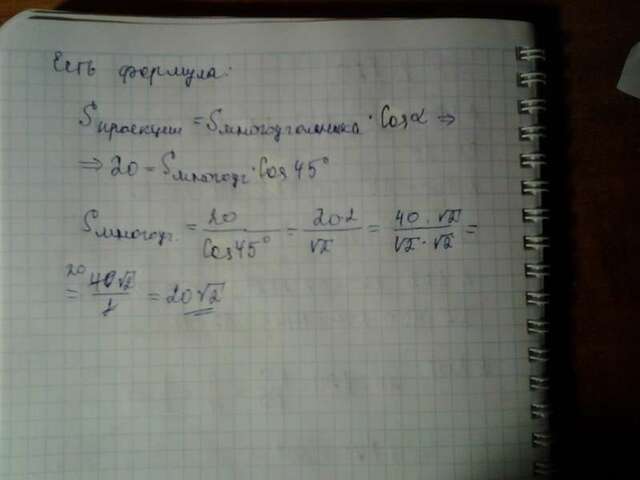 Есть формула:
Sпроекции = Sмногоугольника · Cosα ⇒
⇒ 20 = Sмногоуг · Cos 45°
Sмногоуг. = 20/Cos45° = 20·2/√2 = 40·√2/√2·√2 =
= 40√2/2 = 20√2